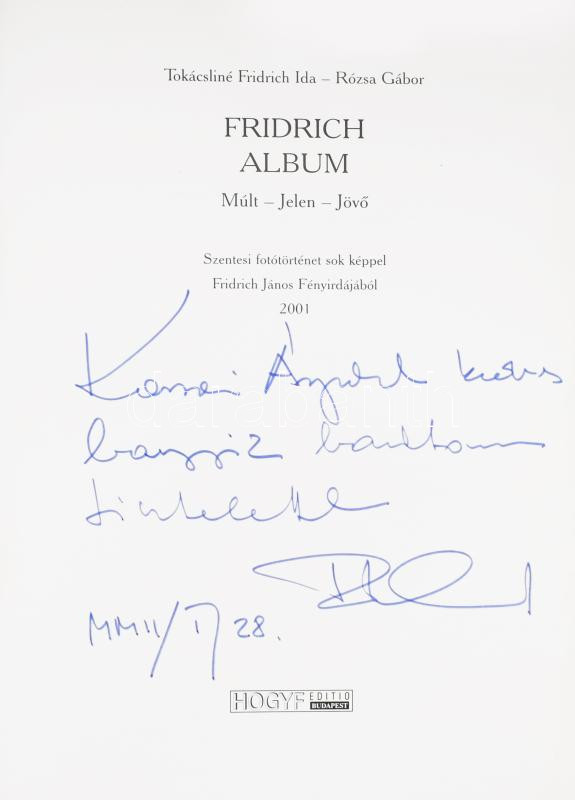 Tokácsliné Fridrich Ida – Rózsa Gábor
FRIDRICH
ALBUM
Múlt – Jelen – Jövő
Szentesi fotótörténet sok képpel
Fridrich János Fényirdájából
2001
Árpád kedves
barátom
tisztelettel
MMII/I/28.
HOGYF EDITIO
BUDAPEST
darabanth